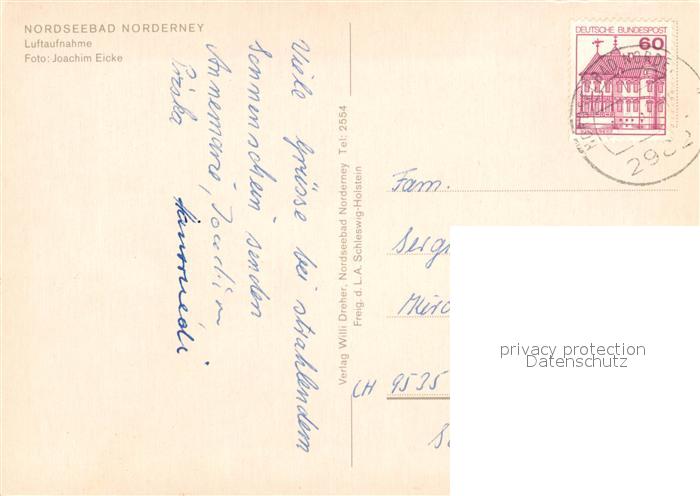 NORDSEEBAD NORDERNEY
Luftaufnahme
Foto: Joachim Eicke
Viele Grüsse bei strahlendem
Sonnenschein senden
Annemarie, Joachim
Priska
Verlag Willi Dreher, Nordseebad Norderney Tel: 2554
Freig. d. L.A. Schleswig-Holstein
DEUTSCHE BUNDESPOST
60
Fam.
CH 9535
privacy protection
Datenschutz